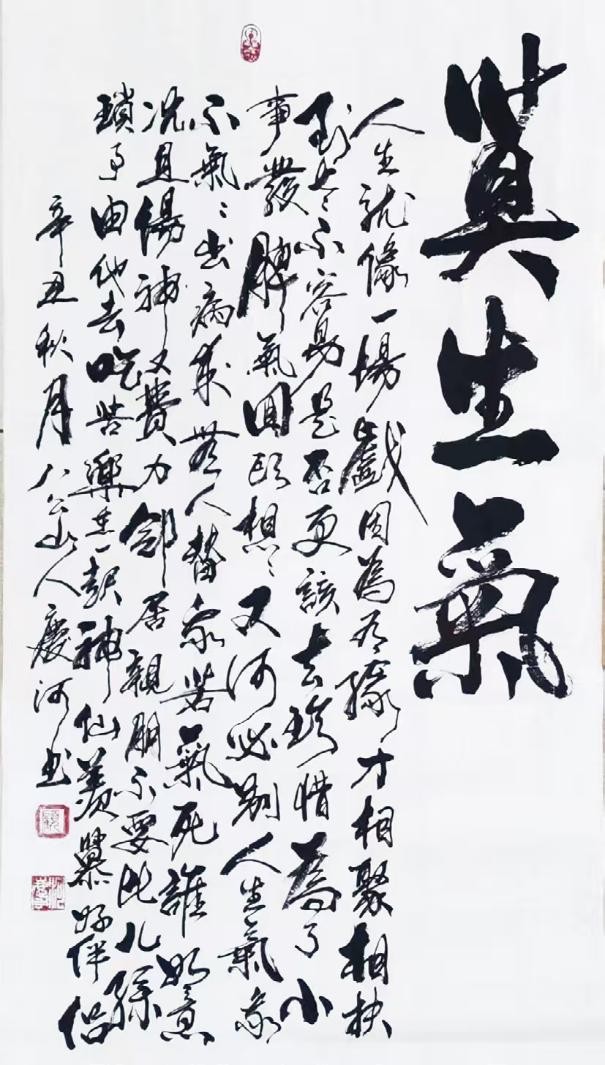 莫生氣
人生就像一場戲因為有緣才相聚相扶
到老不容易是否更該去珍惜為了小
事發脾氣回頭想〻又何必別人生氣我
不氣〻出病來無人替我若氣死誰如意
況且傷神又費力鄰居親朋不要比兒孫
瑣事由他去吃苦樂在一起神仙羨慕好伴侶
辛丑秋月八公山人慶河書